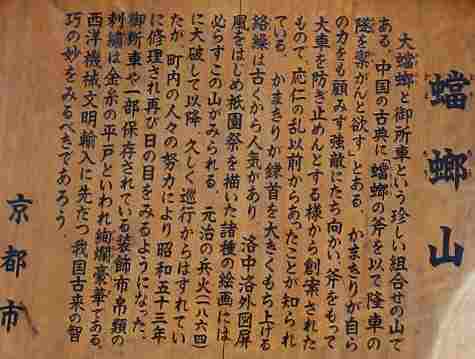 蟷螂山
大蟷螂と御所車という珍しい組合せの山で
ある。中国の古典に「蟷螂の斧を以て隆車の
隧を禦がんと欲す」とある。かまきりが自ら
の力をも顧みず強敵にたち向かい、斧をもって
大車を防ぎ止めんとする様から創案された
もので、応仁の乱以前からあったことが知られ
ている。かまきりが鎌首を大きくもち上げる
絡繰は古くから人気があり、洛中洛外図屏
風をはじめ祇園祭を描いた諸種の絵画には
必らずこの山がみられる。元治の兵火(一八六四)
に大破して以降、久しく巡行からはずれてい
たが、町内の人々の努力により昭和五十三年
に修理され再び日の目をみるようになった。
御所車や一部保存されている装飾布帛類の
刺繍は金糸の平戸といわれ絢爛豪華である。
西洋機械文明輸入に先だつ我国古来の智
巧の妙をみるべきであろう。
京都市